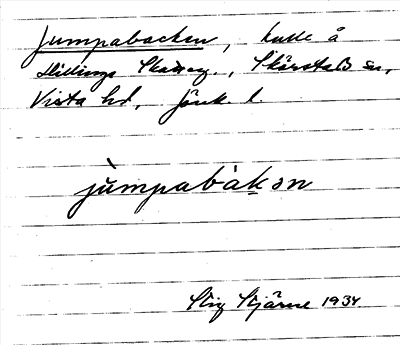 Jumpabacken, kulle å
Hullinge Skatteg., Skärstad sn,
Vista hd, Jönk. l.
jùmpabàkən
Stig Stjärne 1934